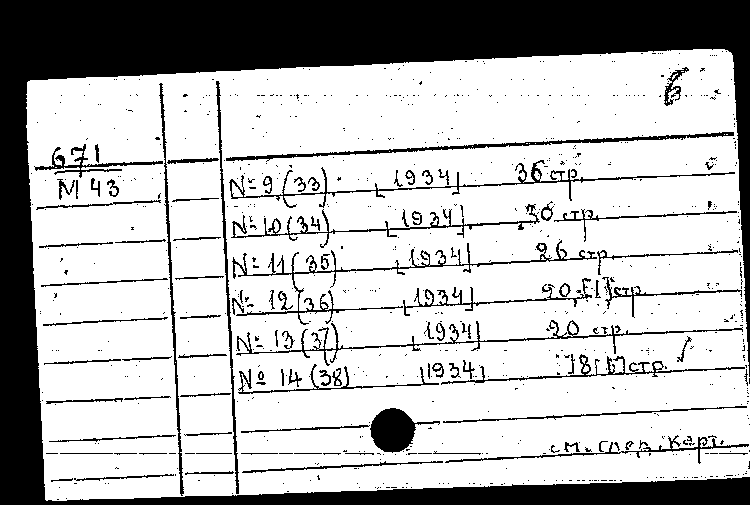 6
671
М 43
№ 9 (33). [1934]. 36 стр.
№ 10 (34). [1934]. 30 стр.
№ 11 (35). [1934]. 26 стр.
№ 12 (36). [1934]. 20, [1] стр.
№ 13 (37). [1934] 20 стр.
№ 14 (38) [1934] стр.
см. след. карт.